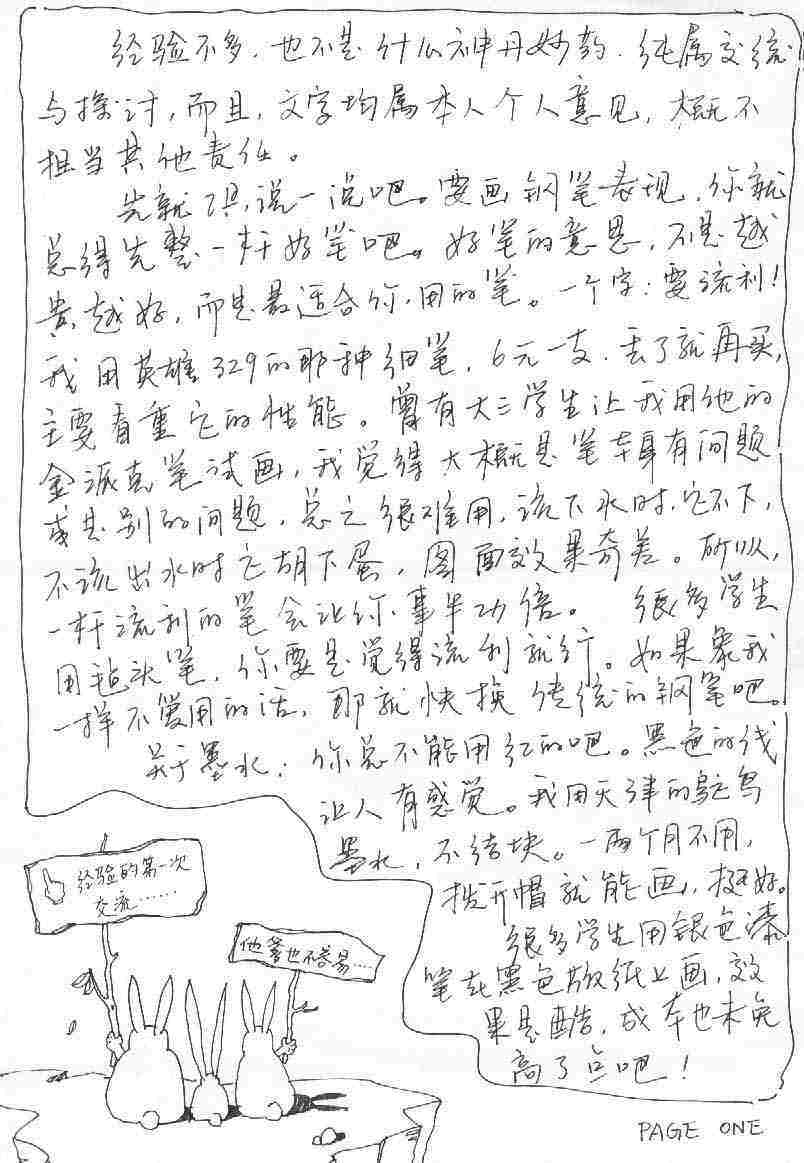 经验不多，也不是什么神丹妙药，纯属交流
与探讨，而且，文字均属本人个人意见，概不
担当其他责任。
先就工具，说一说吧。要画钢笔表现，你就
总得先整一杆好笔吧。好笔的意思，不是越
贵越好，而是最适合你用的笔。一个字：要流利！
我用英雄329的那种细笔，6元一支，丢了就再买，
主要看重它的性能。曾有大三学生让我用他的
金派克笔试画，我觉得大概是笔本身有问题
或是别的问题，总之很难用，该下水时，它不下，
不该出水时它胡下蛋，图面效果奇差。所以，
一杆流利的笔会让你事半功倍。 很多学生
用毡头笔，你要是觉得流利就行。如果象我
一样不爱用的话，那就快换传统的钢笔吧。
关于墨水：你总不能用红的吧。黑色的线
让人有感觉。我用天津的鸵鸟
墨水，不结块。一两个月不用，
拨开帽就能画，挺好。
很多学生用银色漆
笔在黑色版纸上画，效
果是酷，成本也未免
高了点吧！
经验的第一次
交流……
他爹也不容易…
PAGE ONE